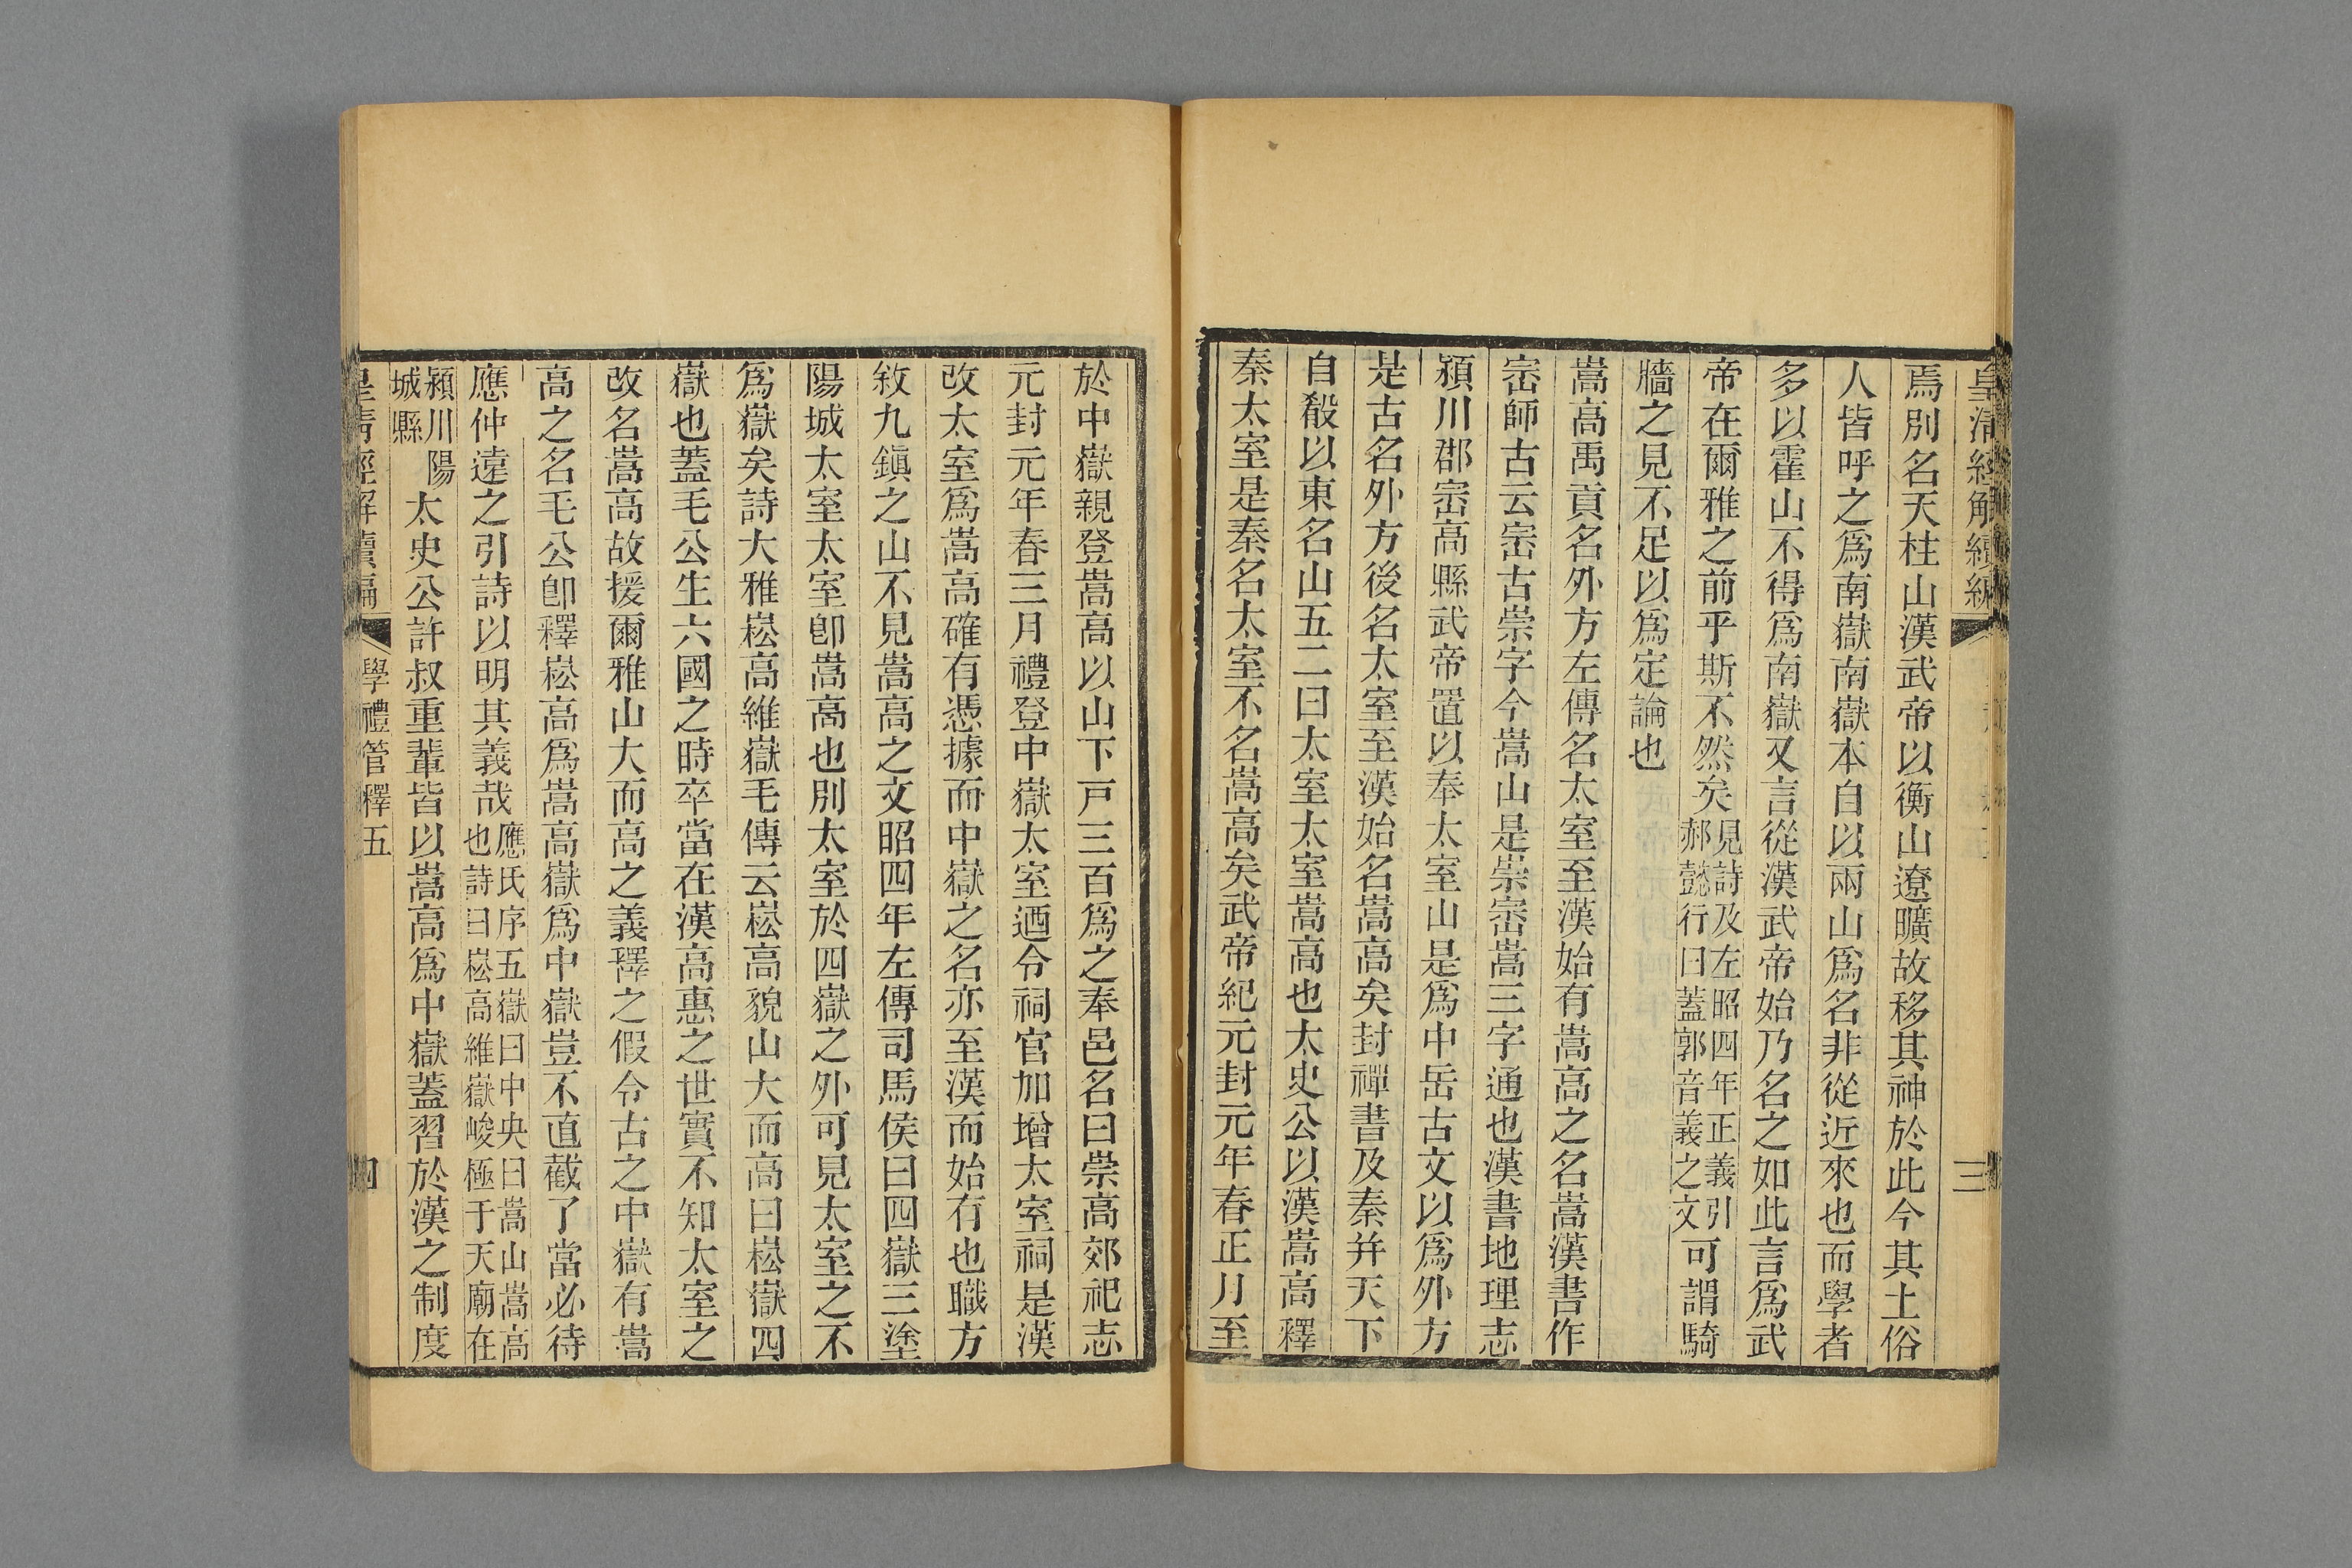 皇清經解續編
三
焉別名天柱山漢武帝以衡山遼曠故移其神於此今其土俗
人皆呼之爲南嶽南嶽本自以兩山爲名非從近來也而學者
多以霍山不得爲南嶽又言從漢武帝始乃名之如此言爲武
帝在爾雅之前乎斯不然矣見詩及左昭四年正義引郝懿行曰蓋郭音義之文可謂騎
牆之見不足以爲定論也
嵩高禹貢名外方左傳名太室至漢始有嵩高之名嵩漢書作
崈師古云崈古崇字今嵩山是崇崈嵩三字通也漢書地理志
潁川郡崈高縣武帝置以奉太室山是爲中岳古文以爲外方
是古名外方後名太室至漢始名嵩高矣封禪書及秦并天下
自殽以東名山五二曰太室太室嵩高也太史公以漢嵩高釋
秦太室是秦名太室不名嵩高矣武帝紀元封元年春正月至
於中嶽親登嵩高以山下戸三百爲之奉邑名曰崇高郊祀志
元封元年春三月禮登中嶽太室迺令祠官加增太室祠是漢
改太室爲嵩高確有憑據而中嶽之名亦至漢而始有也職方
敘九鎭之山不見嵩高之文昭四年左傳司馬侯曰四嶽三塗
陽城太室太室卽嵩高也別太室於四嶽之外可見太室之不
爲嶽矣詩大雅崧高維嶽毛傳云崧高貌山大而高曰崧嶽四
嶽也蓋毛公生六國之時卒當在漢高惠之世實不知太室之
改名嵩高故援爾雅山大而高之義釋之假令古之中嶽有嵩
高之名毛公卽釋崧高爲嵩高嶽爲中嶽豈不直截了當必待
應仲遠之引詩以明其義哉應氏序五嶽曰中央曰嵩山嵩高也詩曰崧高維嶽峻極于天廟在
潁川陽城縣太史公許叔重輩皆以嵩高爲中嶽蓋習於漢之制度
皇清經解續編
學禮管釋五
四